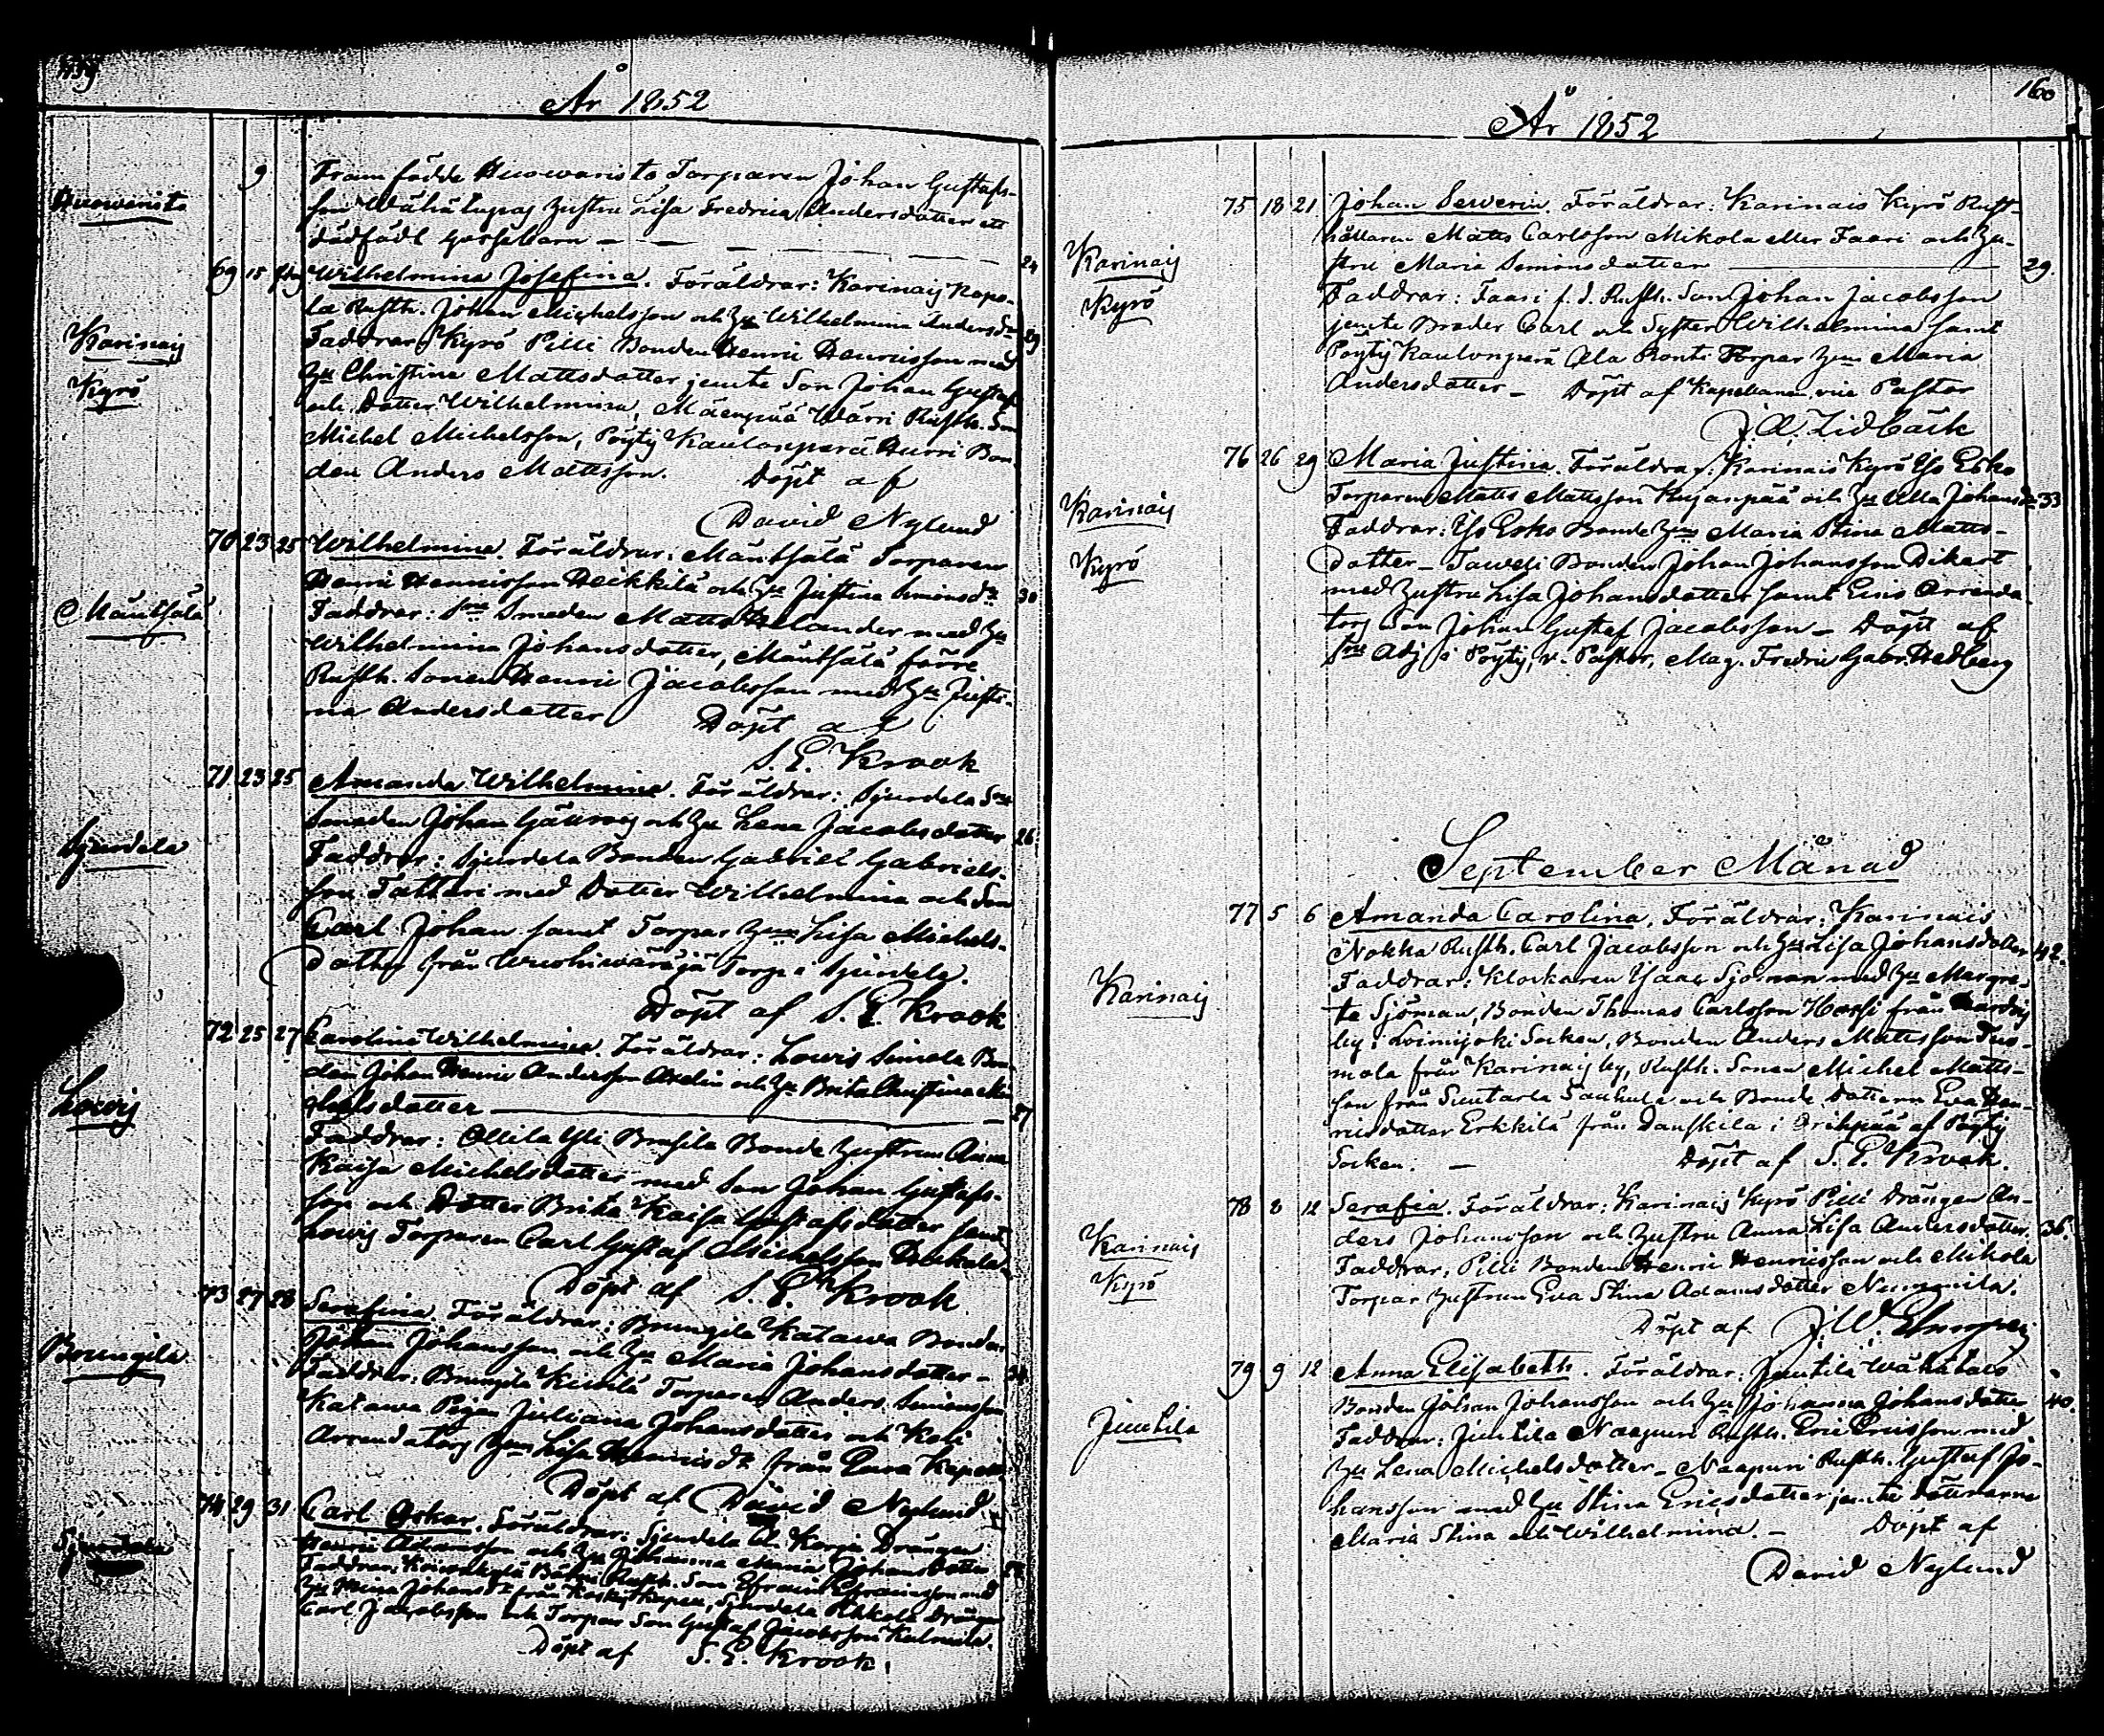 159
År 1852
Huowaristo
9 Framfödde Huowaristo Torparen Johan Gustafs-
son Wähätupas hustru Lisa Fredrica Andersdotter ett
dödfödt gossebarn — 24
Karinais
Kyrö
69 15 Wilhelmina Josefina. Föräldrar: Karinais
la Rusth. Johan Michelsson och Hu Wilhelmina Andersdr 29
Faddrar: Kyrö Pilli Bonden Henric Henricsson med
Hu Christina Mattsdotter jemte Son Johan Gustaf
och Dotter Wilhelmina, Mäenpää Wärri Rusth. Son
Michel Michelsson, Pöyty Kaulanperä Hurri Bon-
den Anders Mattsson. Döpt af
David Nylund
Mäntsälä
70 23 25 Wilhelmina. Föräldrar: Mäntsälä Torparen
Henric Henricsson Heikkilä och Hu Justina Simonsdr 30
Faddrar: Sne Smeden Matts Helander med Hu
Wilhelmina Johansdotter, Mäntsälä förre
Rusth. Sonen Henric Jacobsson med Hu Justi-
na Andersdotter Döpt af
S. E. Krook
Sjundela
71 23 25 Amanda Wilhelmina. Föräldrar: Sjundela Sne
Smeden Johan och Hu Lena Jacobsdotter 26
Faddrar: Sjundela Bonden Gabriel Gabriels-
son Tattari med Dotter Wilhelmina och Son
Carl Johan samt Torpar Hun Lisa Michels-
dotter från Torp i Sjundela.
Döpt af S. E. Krook
Lowis
72 25 27 Carolina Wilhelmina. Föräldrar: Lowis Simola Bon-
den Johan Henric Andersson Axelin och Hu Brita Christina Mi-
chelsdotter — 27
Faddrar: Ollila Yli Brusila Bonde hustrun Anna
Kaisa Michelsdotter med Son Johan Gustafs-
son och Dotter Brita Kaisa Gustafsdotter samt
Lowis Torparen Carl Gustaf Michelsson
Döpt af S. E. Krook
Brungila
73 27 28 Serafina. Föräldrar: Brungila Katawa Bonden
Johan Johansson och Hu Maria Johansdotter —
Faddrar: Brungila Torparen Anders Simonsson
Katawa Pigan Juliana Johansdotter och Koli
Arrendators Hun Lisa Henricsdr från Eura Kapell
Döpt af David Nylund
Sjundela
74 29 31 Carl Oskar. Föräldrar: Sjundela A. Korpi Drängen
Henric Adamsson och Hu Johanna Maria Johansdotter
Faddrar: Rusth. Son Efraim Efraimsson med
Hu Mina Johansdr från Koskis Kapell, Sjundela Pihkola Drängen
Carl Jacobsson och Torpar Son Gustaf Jacobsson Kulmala.
Döpt af S. E. Krook.
160
År 1852
Karinais
Kyrö
75 18 21 Johan Sewerin. Föräldrar: Karinais Kyrö Rust-
hållaren Matts Carlsson Mikola eller Faari och Hu-
stru Maria Simonsdotter — 29
Faddrar: Faari f. d. Rusth. Son Johan Jacobsson
jemte Broder Carl och Syster Wilhelmina samt
Pöyty Kaulanperä Ala Ronti Torpar Hun Maria
Andersdotter — Döpt af Kapellanen, vice Pastor
J. A. Lidbäck
Karinais
Kyrö
76 26 29 Maria Justina. Föräldrar: Karinais Kyrö Yso Esko
Torparen Matts Mattsson Kujanpää och Hu Ulla Johansdr 33
Faddrar: Yso Esko Bonde Hun Maria Stina Matts-
dotter — Taweli Bonden Johan Johansson Dikert
med hustru Lisa Johansdotter samt Eris Arrenda-
tors Son Johan Gustaf Jacobsson — Döpt af
Sne Adj. i Pöyty, v. Pastor, Mag. Fredric Gabr. Hedberg
September Månad
Karinais
77 5 6 Amanda Carolina. Föräldrar: Karinais
Nokka Rusth. Carl Jacobsson och Hu Lisa Johansdotter 42.
Faddrar: Klockaren Isaac Sjöman med Hu Margre-
ta Sjöman, Bonden Thomas Carlsson Hossi från
by i Loimijoki Socken, Bonden Anders Mattsson Tuo-
mola från Karinais by, Rusth. Sonen Michel Matts-
son från Suutarla Sauhula och Bonde dottern Eva Hen-
ricsdotter Erkkilä från Danskila i Orihpää af Pöyty
Socken. — Döpt af S. E. Krook.
Karinais
Kyrö
78 8 12 Serafia. Föräldrar: Karinais Kyrö Pilli Drängen An-
ders Johansson och hustru Anna Lisa Andersdotter. 36.
Faddrar: Pilli Bonden Henric Henricsson och Mikola
Torpar hustrun Eva Stina Adamsdotter Nummila.
Döpt af J. W.
Juntila
79 9 12 Anna Elisabeth. Föräldrar: Juntila Wähätalo
Bonden Johan Johansson och Hu Johanna Johansdotter 40.
Faddrar: Juntila Naapuri Rusth. Eric Ericsson med
Hu Lena Michelsdotter — Naapuri Rusth. Gustaf Jo-
hansson med Hu Stina Ericsdotter jemte döttrarne
Maria Stina och Wilhelmina. — Döpt af
David Nylund